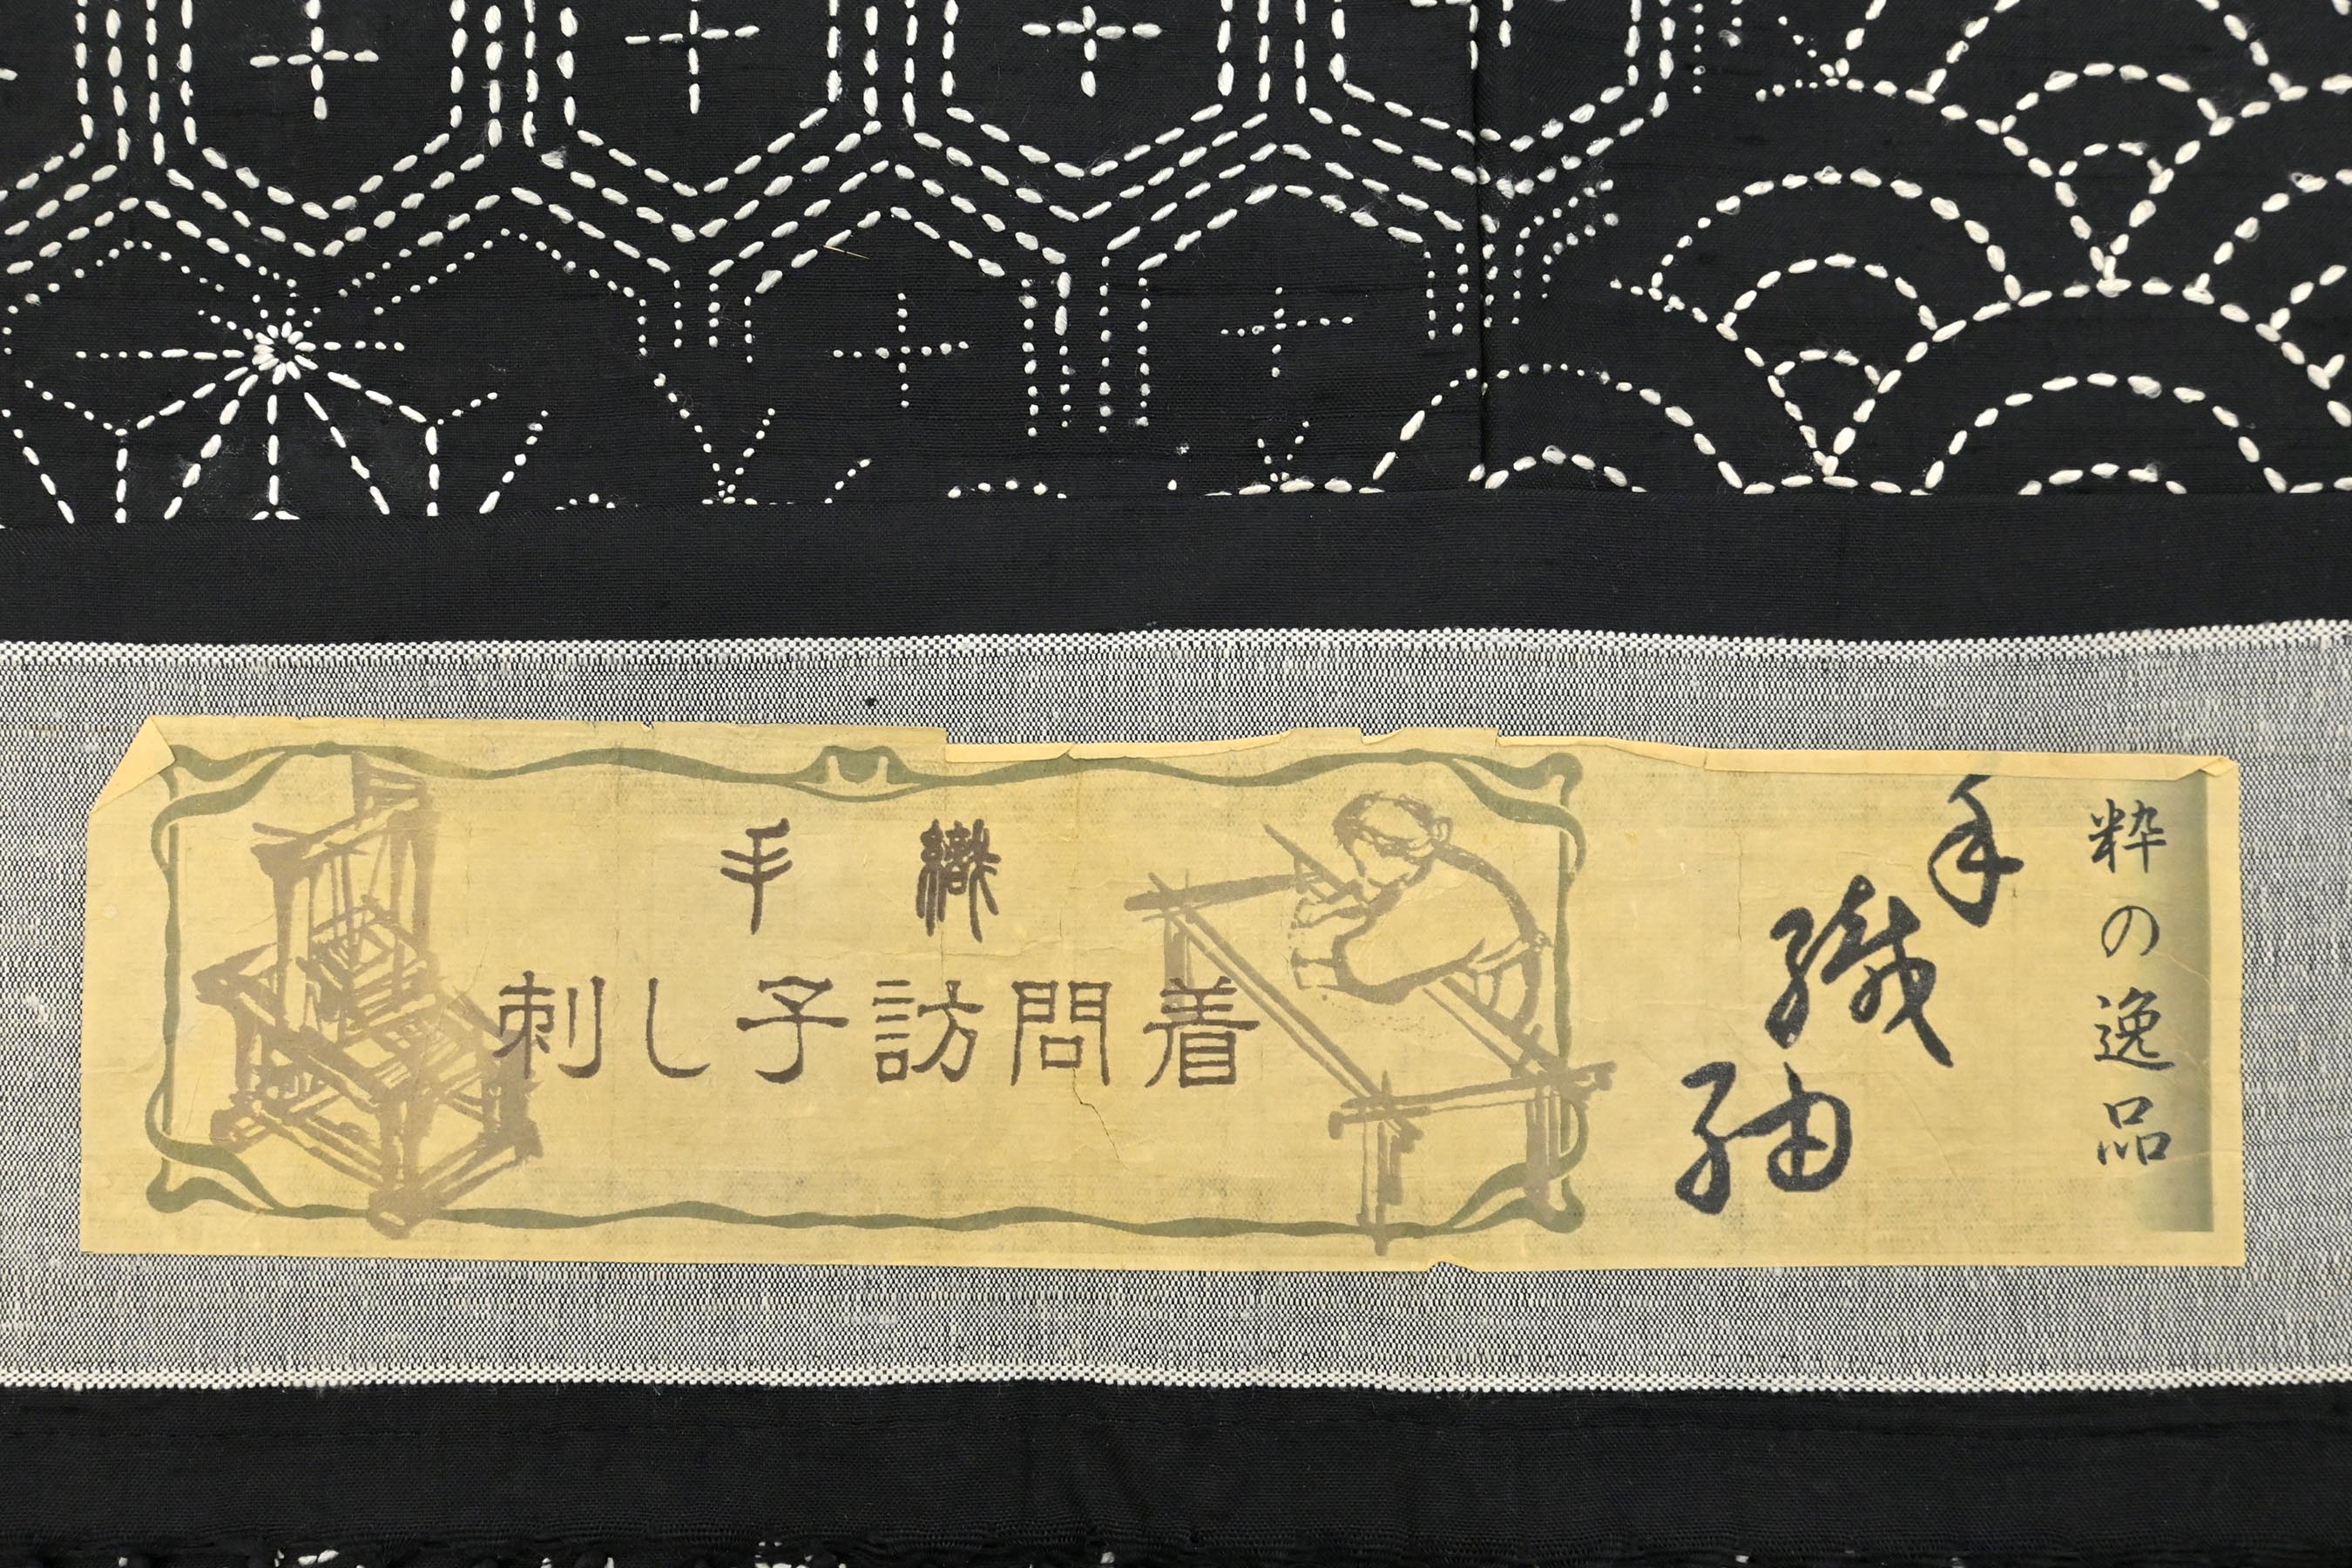 手織
刺し子訪問着
粋の逸品
手織紬